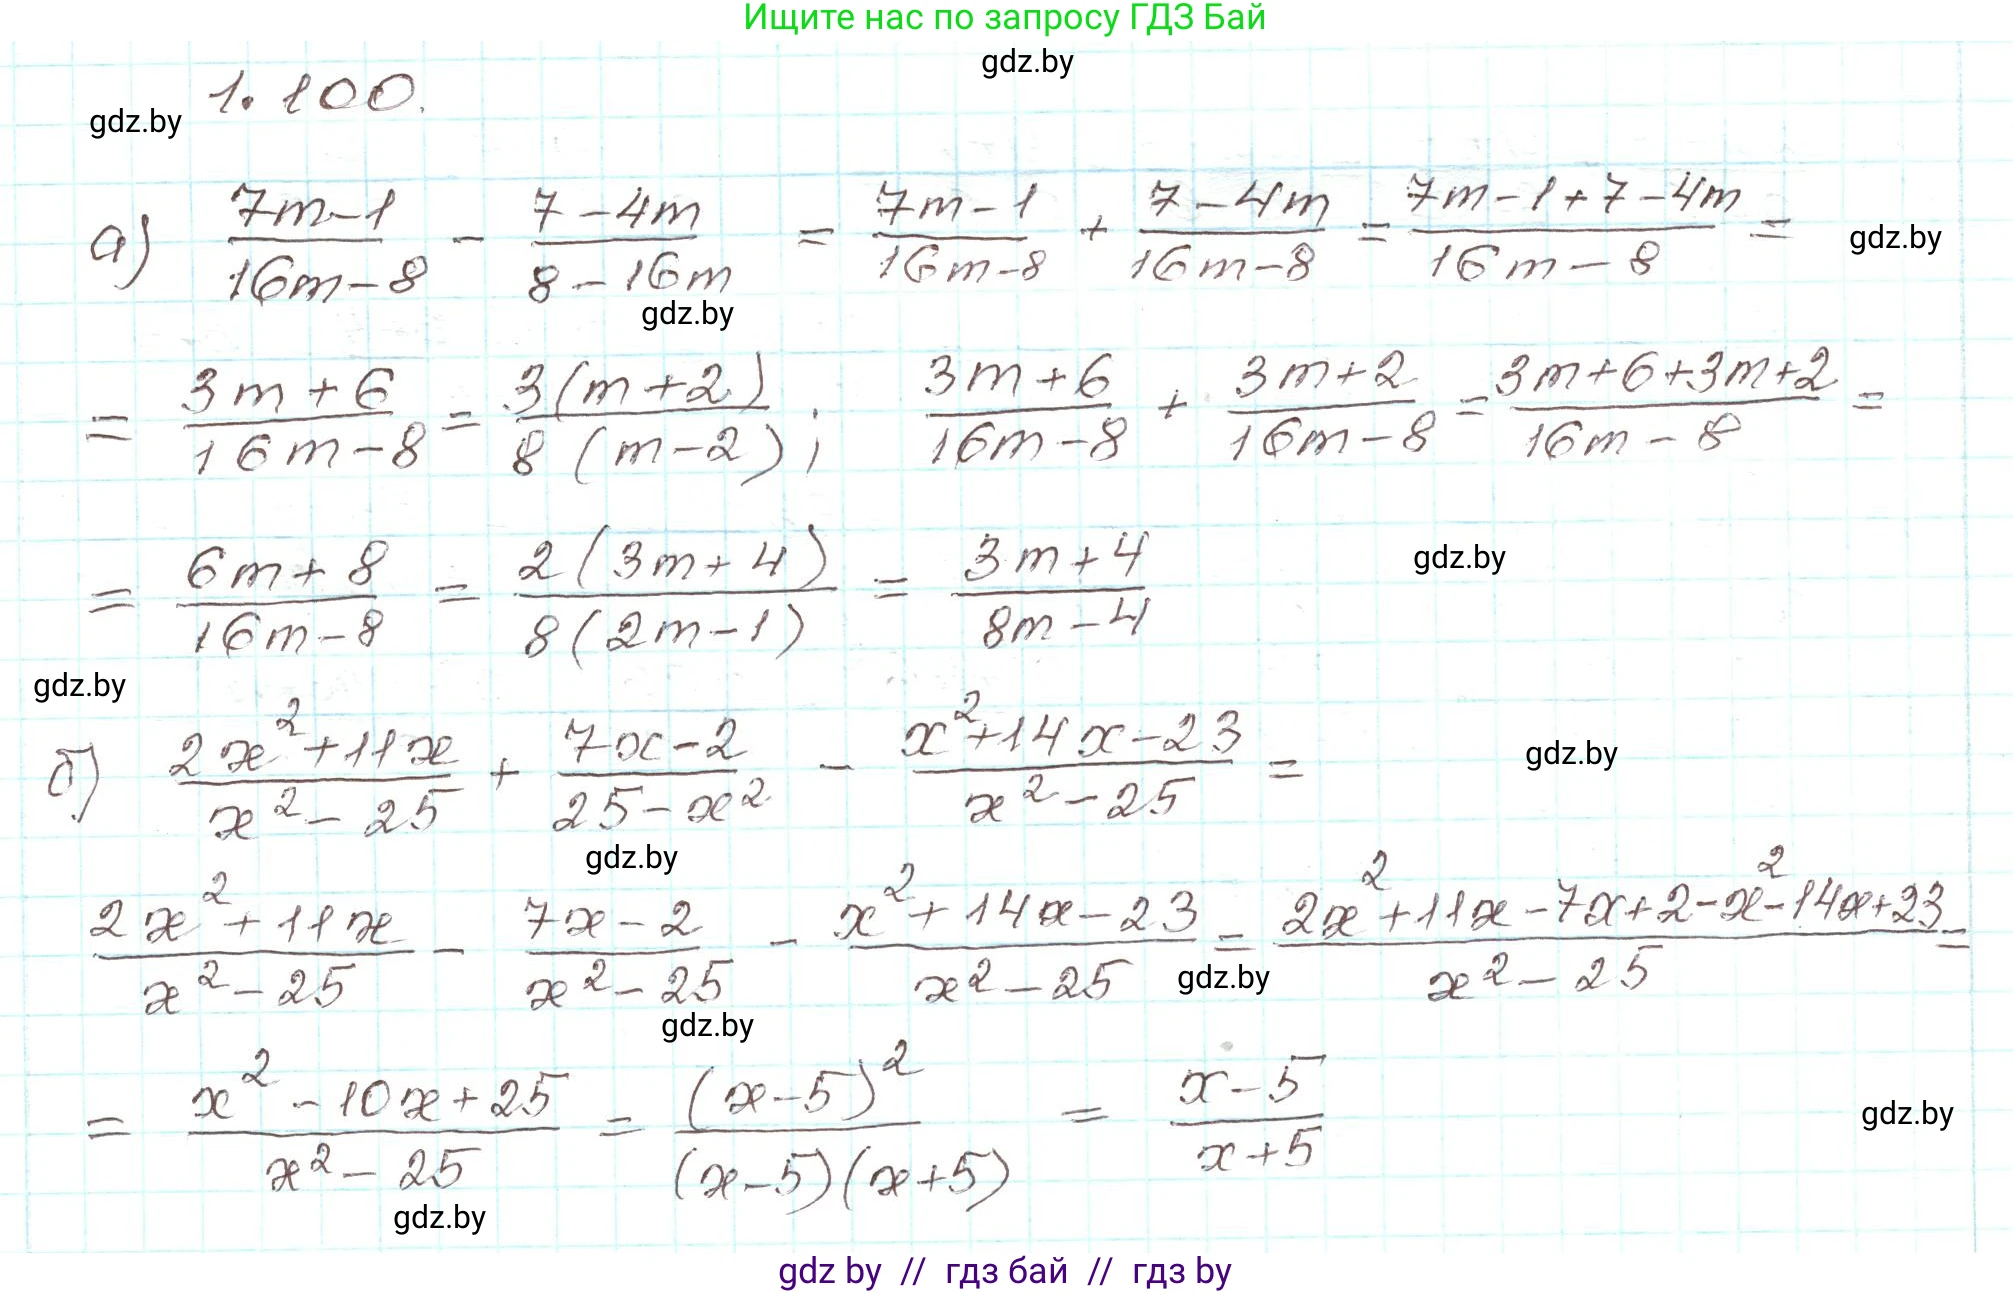 Ищите нас по запросу ГДЗ Бай
gdz.by
1.100.
gdz.by
а) (7m-1)/(16m-8) - (7-4m)/(8-16m) = (7m-1)/(16m-8) + (7-4m)/(16m-8) = (7m-1+7-4m)/(16m-8) =
gdz.by
gdz.by
= (3m+6)/(16m-8) = 3(m+2)/8(m-2); (3m+6)/(16m-8) + (3m+2)/(16m-8) = (3m+6+3m+2)/(16m-8) =
= (6m+8)/(16m-8) = 2(3m+4)/8(2m-1) = (3m+4)/(8m-4)
gdz.by
gdz.by
б) (2x²+11x)/(x²-25) + (7x-2)/(25-x²) - (x²+14x-23)/(x²-25) =
gdz.by
gdz.by
(2x²+11x)/(x²-25) - (7x-2)/(x²-25) - (x²+14x-23)/(x²-25) = (2x²+11x-7x+2-x²-14x+23)/(x²-25) =
gdz.by
gdz.by
= (x²-10x+25)/(x²-25) = (x-5)²/(x-5)(x+5) = (x-5)/(x+5)
gdz.by
gdz.by
gdz by // гдз бай // гдз by